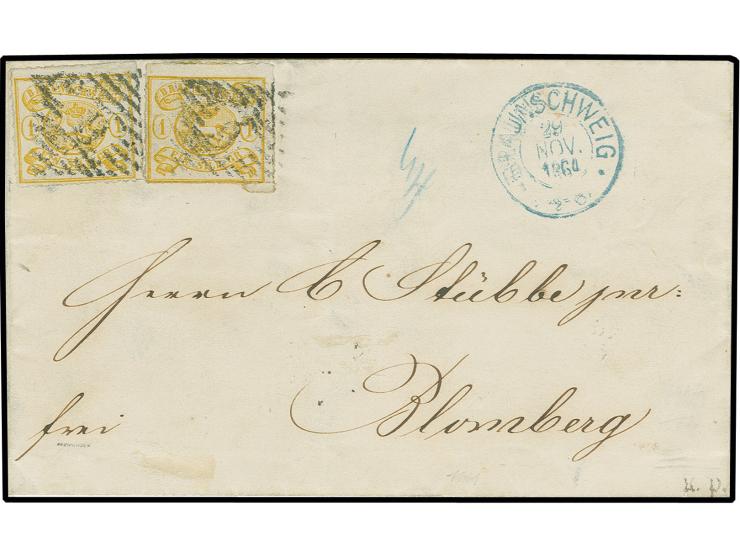 1 1 1 1
BRAUNSCHWEIG
29
NOV.
1864
Herrn C Stübbe jnr:
Blomberg
frei
H. P.